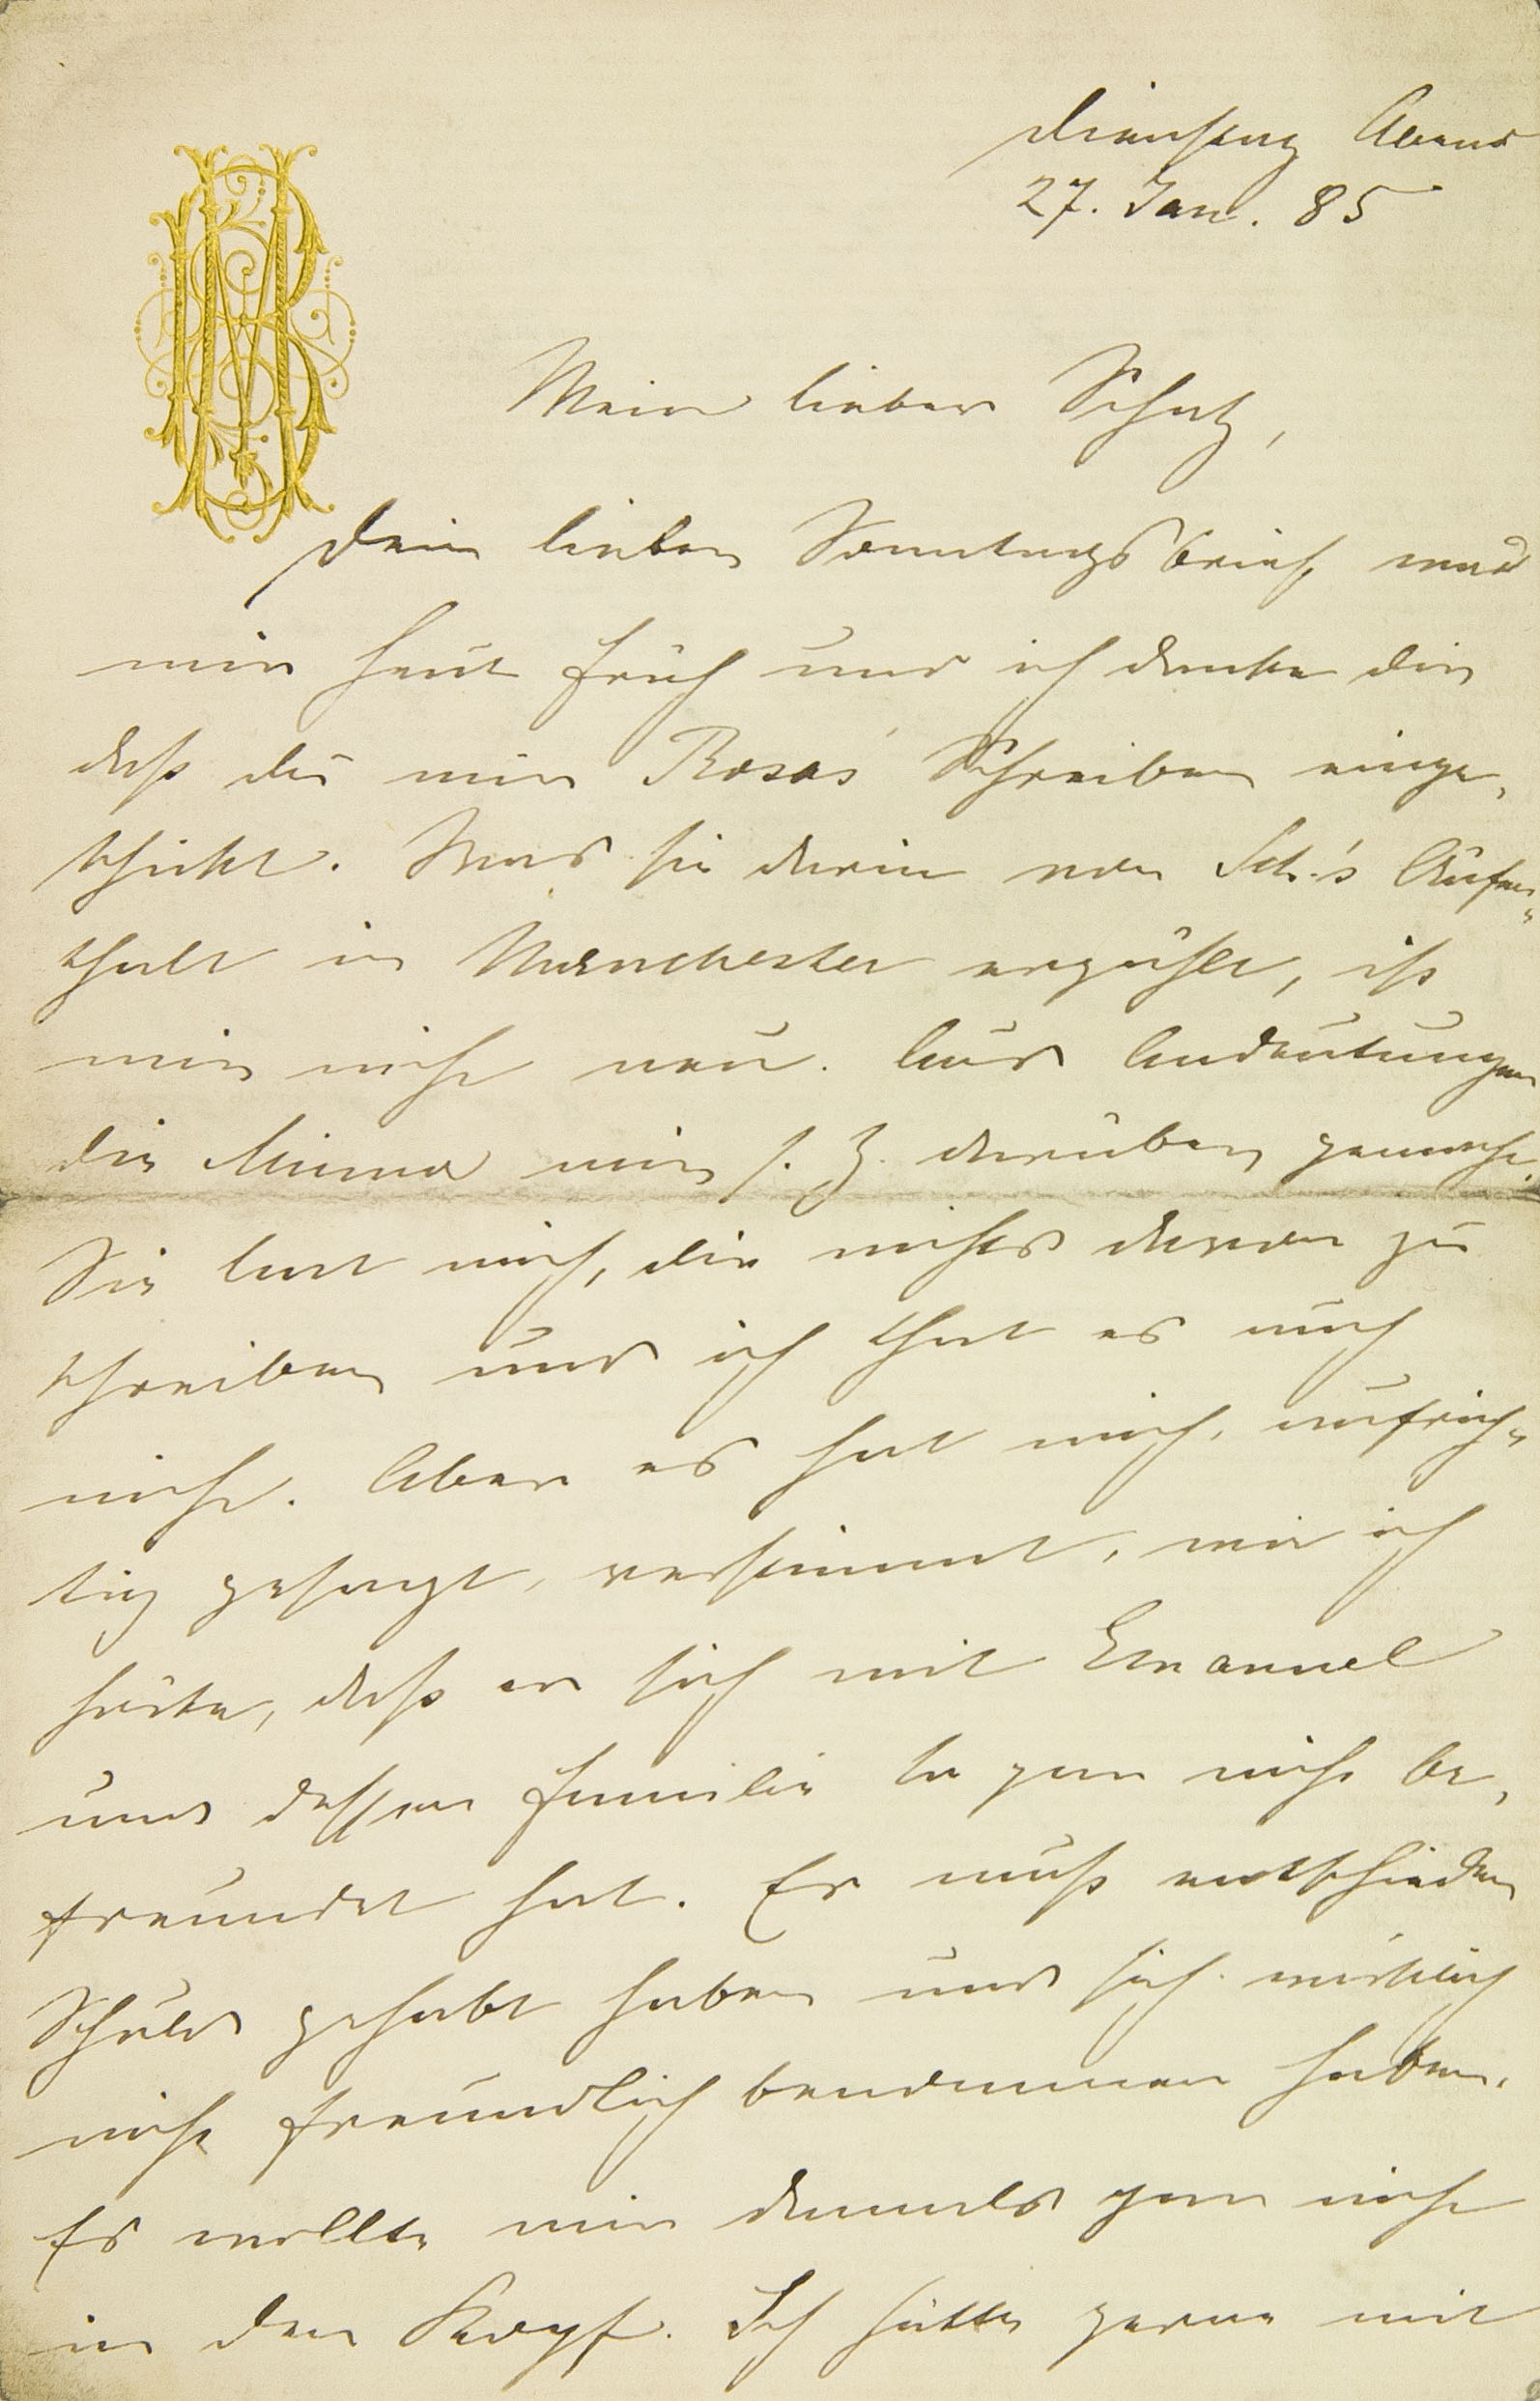 Dienstag Abend
27. Jan. 85
Mein lieber Schatz,
Dein lieber Sonntagsbrief ward
mir heut früh und ich danke dir
daß du mir Rosas' Schreiben einge-
schickt. Was sie darin von Sch.'s Aufent-
halt in Manchester erzählt, ist
mir nicht neu. Aus Andeutungen
die Minna mir s. Z. darüber gemacht.
Sie bat mich, dir nichts davon zu
schreiben und ich that es auch
nicht. Aber es hat mich, aufrich-
tig gesagt, verstimmt, wie ich
hörte, daß er sich mit Emanuel
und dessen Familie so gar nicht be-
freundet hat. Er muß entschieden
Schuld gehabt haben und sich wirklich
nicht freundlich benommen haben.
Es wollte mir damals gar nicht
in den Kopf. Ich hätte gerne mit